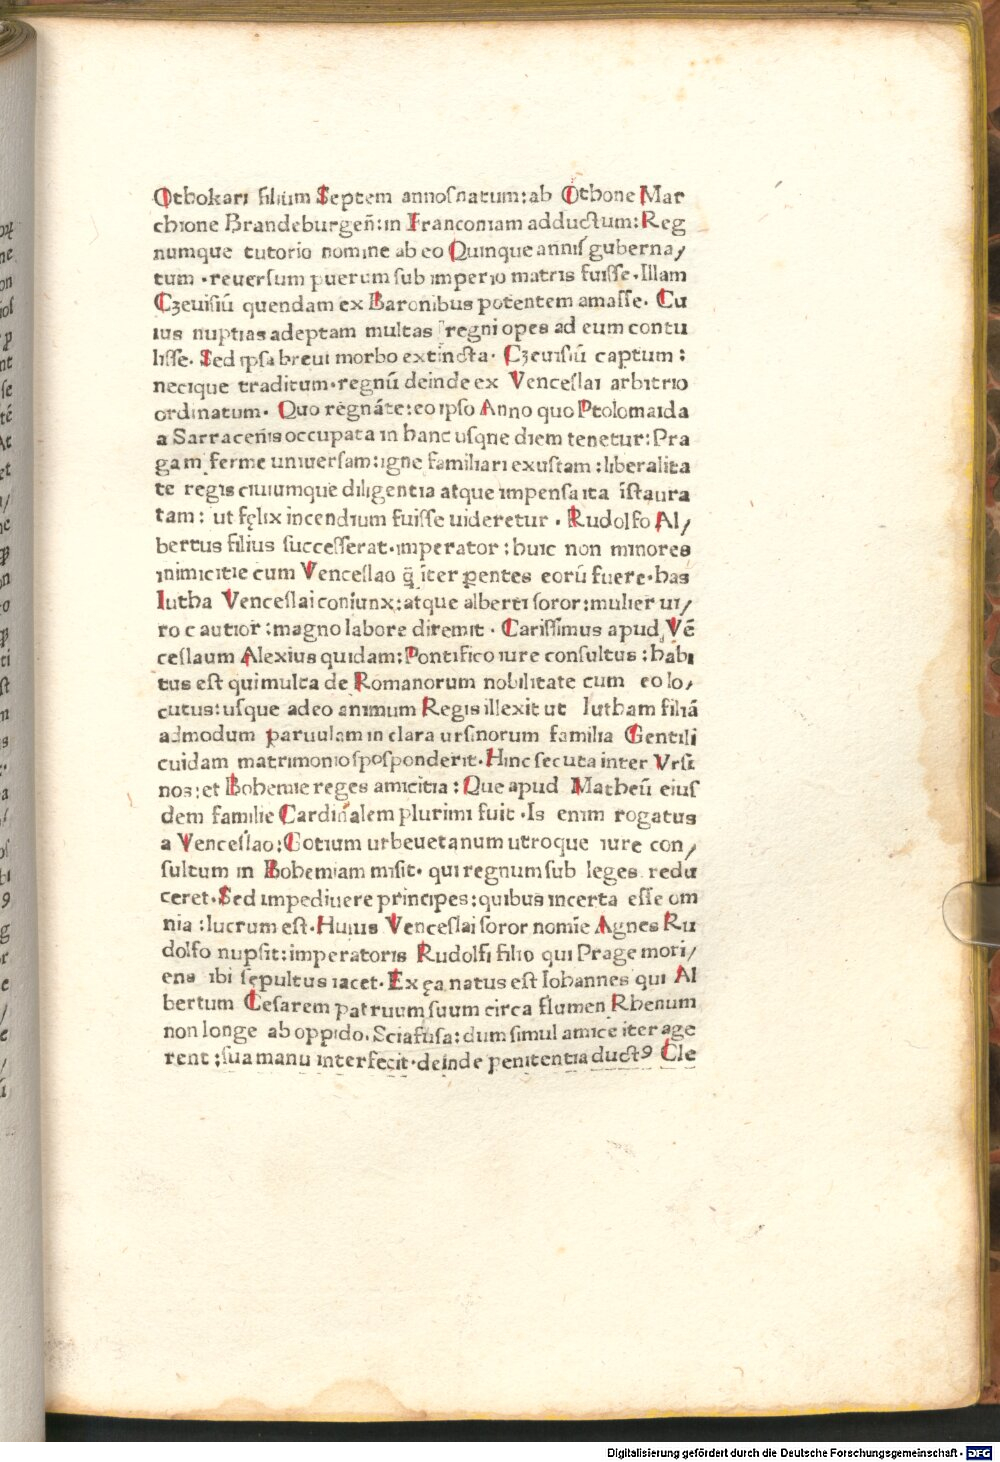 Othokari filium Septem annoſ natum: ab Othone Mar
chione Brandeburgen̄: in Franconiam adductum: Reg
numque tutorio nomine ab eo Quinque anniſ guberna/
tum . reuerſum puerum ſub imperio matris fuiſſe . Illam
Czeuiſiū quendam ex Baronibus potentem amaſſe. Cu
ius nuptias adeptam multas regni opes ad eum contu
liſſe. Sed ipſa breui morbo extincta. Czeuiſiū captum:
necique traditum. regnū deinde ex Venceſlai arbitrio
ordinatum. Quo regnāte: eo ipſo Anno quo Ptolomaida
a Sarracen̄is occupata in hanc uſqne diem tenetur: Pra
gam ferme uniuerſam: igne familiari exuſtam: liberalita
te regis ciuiumque diligentia atque impenſa ita iſtaura
tam: ut fęlix incendium fuiſſe uideretur . Rudolfo Al/
bertus filius ſucceſſerat. imperator: huic non minores
inimicitie cum Venceſlao q̄ īter ꝑentes eorū fuere. has
Iutha Venceſlai coniunx: atque alberti ſoror: mulier ui/
ro cautior: magno labore diremit . Cariſſimus apud Vē
ceſlaum Alexius quidam: Pontifico iure conſultus: habi
tus eſt qui multa de Romanorum nobilitate cum eo lo/
cutus: uſque adeo animum Regis illexit ut Iutham filiā
admodum paruulam in clara urſinorum familia Gentili
cuidam matrimonio ſpoſponderit. Hinc ſecuta inter Vrſi
nos: et Bohemie reges amicitia: Que apud Matheū eiuſ
dem familie Cardinalem plurimi fuit . Is enim rogatus
a Venceſlao: Gotium urbeuetanum utroque iure con/
ſultum in Bohemiam miſit. qui regnum ſub leges redu
ceret. Sed impediuere principes: quibus incerta eſſe om
nia: lucrum eſt. Huius Venceſlai ſoror nomīe Agnes Ru
dolfo nupſit: imperatoris Rudolfi filio qui Prage mori/
ens ibi ſępultus iacet. Ex ęa natus eſt Iohannes qui Al
bertum Ceſarem patruum ſuum circa flumen Rhenum
non longe ab oppido. Sciafuſa: dum ſimul amice iter age
rent: ſua manu interfecit. deinde penitentia ductꝰ Cle
Digitalisierung gefördert durch die Deutsche Forschungsgemeinschaft - DFG